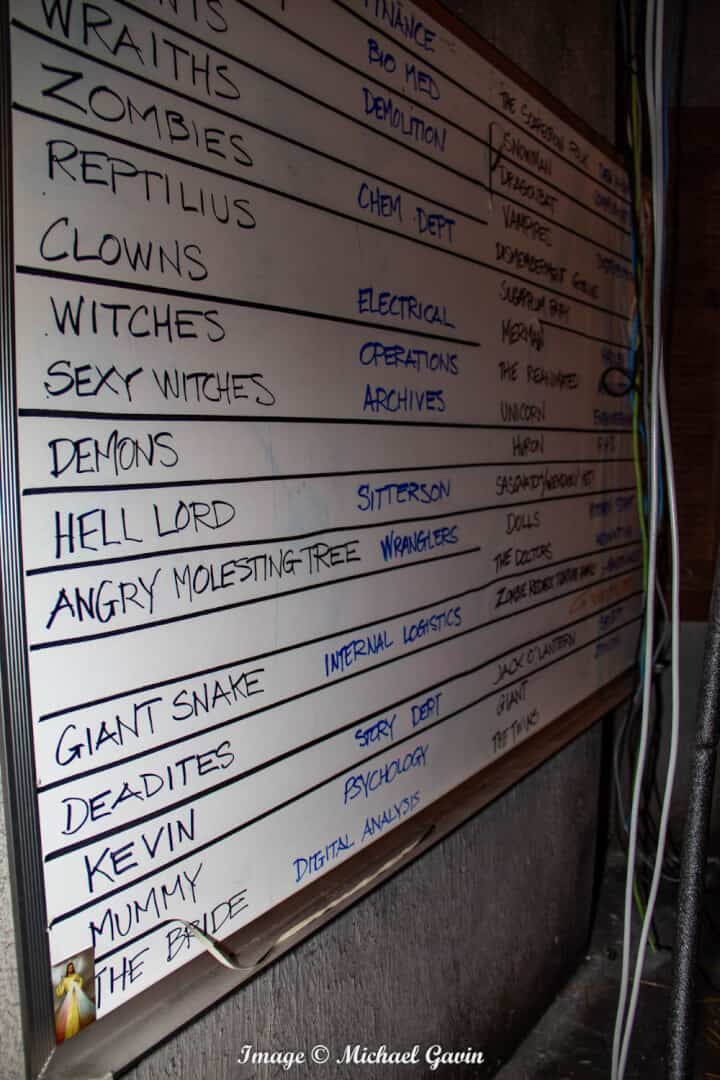 WRAITHS
ZOMBIES
REPTILIUS
CLOWNS
WITCHES
SEXY WITCHES
DEMONS
HELL LORD
ANGRY MOLESTING TREE
GIANT SNAKE
DEADITES
KEVIN
MUMMY
THE BRIDE
FINANCE
BIO MED
DEMOLITION
CHEM DEPT
ELECTRICAL
OPERATIONS
ARCHIVES
SITTERSON
WRANGLERS
INTERNAL LOGISTICS
STORY DEPT
PSYCHOLOGY
DIGITAL ANALYSIS
THE SCARECROW FOLK
SNOWMAN
DRAGONBAT
VAMPIRES
DISMEMBERMENT GOBLINS
SUGARPLUM FAIRY
MERMAN
THE REANIMATED
UNICORN
HURON
SASQUATCH/WENDIGO/YETI
DOLLS
THE DOCTORS
ZOMBIE REDNECK TORTURE FAMILY
JACK O'LANTERN
GIANT
THE TWINS
Image © Michael Gavin